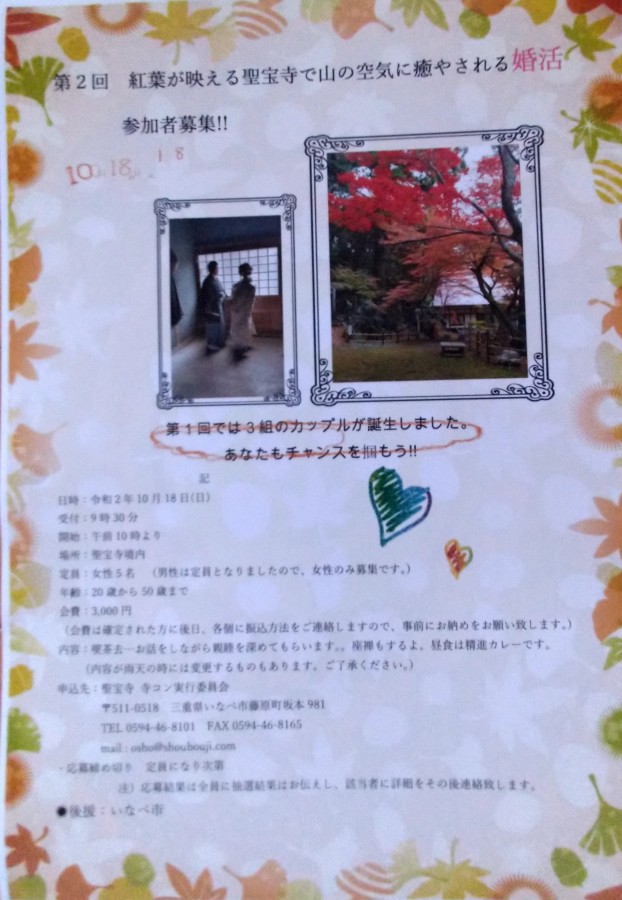 第２回　紅葉が映える聖宝寺で山の空気に癒やされる婚活
参加者募集!!
10 18
第１回では３組のカップルが誕生しました。
あなたもチャンスを掴もう!!
記
日時：令和２年10月18日(日)
受付：9時30分
開始：午前10時より
場所：聖宝寺境内
定員：女性５名　（男性は定員となりましたので、女性のみ募集です。）
年齢：20歳から50歳まで
会費：3,000円
（会費は確定された方に後日、各個に振込方法をご連絡しますので、事前にお納めをお願い致します。）
内容：喫茶去―お話をしながら親睦を深めてもらいます。。座禅もするよ。昼食は精進カレーです。
（内容が雨天の時には変更するものもあります。ご了承ください。）
申込先：聖宝寺　寺コン実行委員会
〒511-0518　三重県いなべ市藤原町坂本981
TEL 0594-46-8101　FAX 0594-46-8165
mail : osho@shoubouji.com
・応募締め切り　定員になり次第
注）応募結果は全員に抽選結果はお伝えし、該当者に詳細をその後連絡致します。
●後援：いなべ市